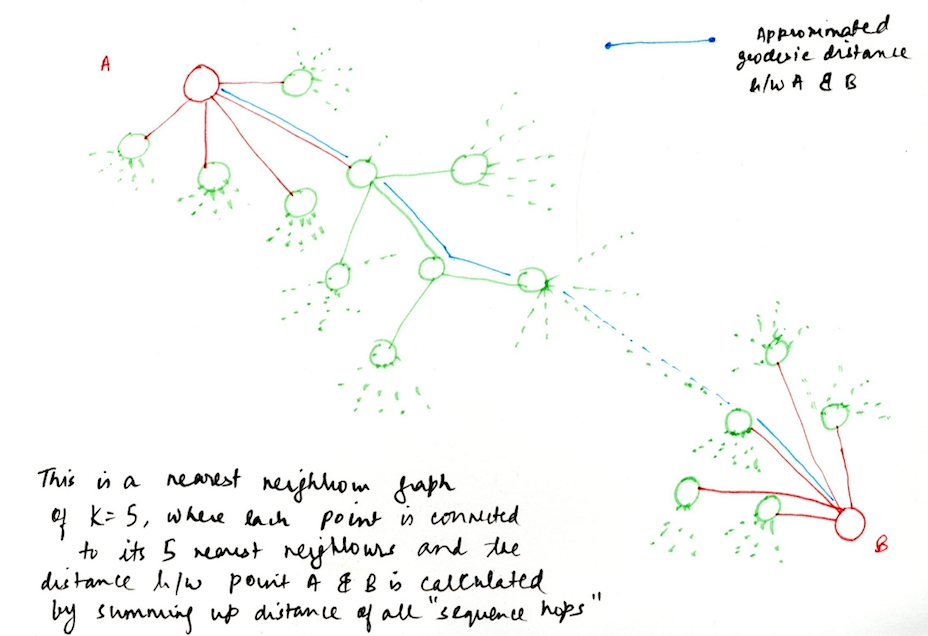 A
Approximated
geodesic distance
b/w A & B
This is a nearest neighbour graph
of K=5, where each point is connected
to its 5 nearest neighbours and the
distance b/w point A & B is calculated
by summing up distance of all "sequence hops"
B